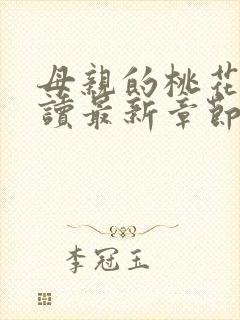 母親的桃花
讀最新章節
李冠玉